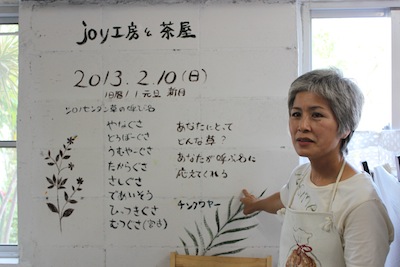 joy工房と茶屋
2013.2.10(日)
旧暦1.1 元旦 新月
シロバナセンダン草の呼び名
やなぐさ
とぅばーぐさ
うむやーぐさ
たからぐさ
さしぐさ
であいそう
ひっつきぐさ
むつぐさ
あなたにとって
どんな草?
あなたが呼ぶ名に
応えてくれる
チンヌクヤー